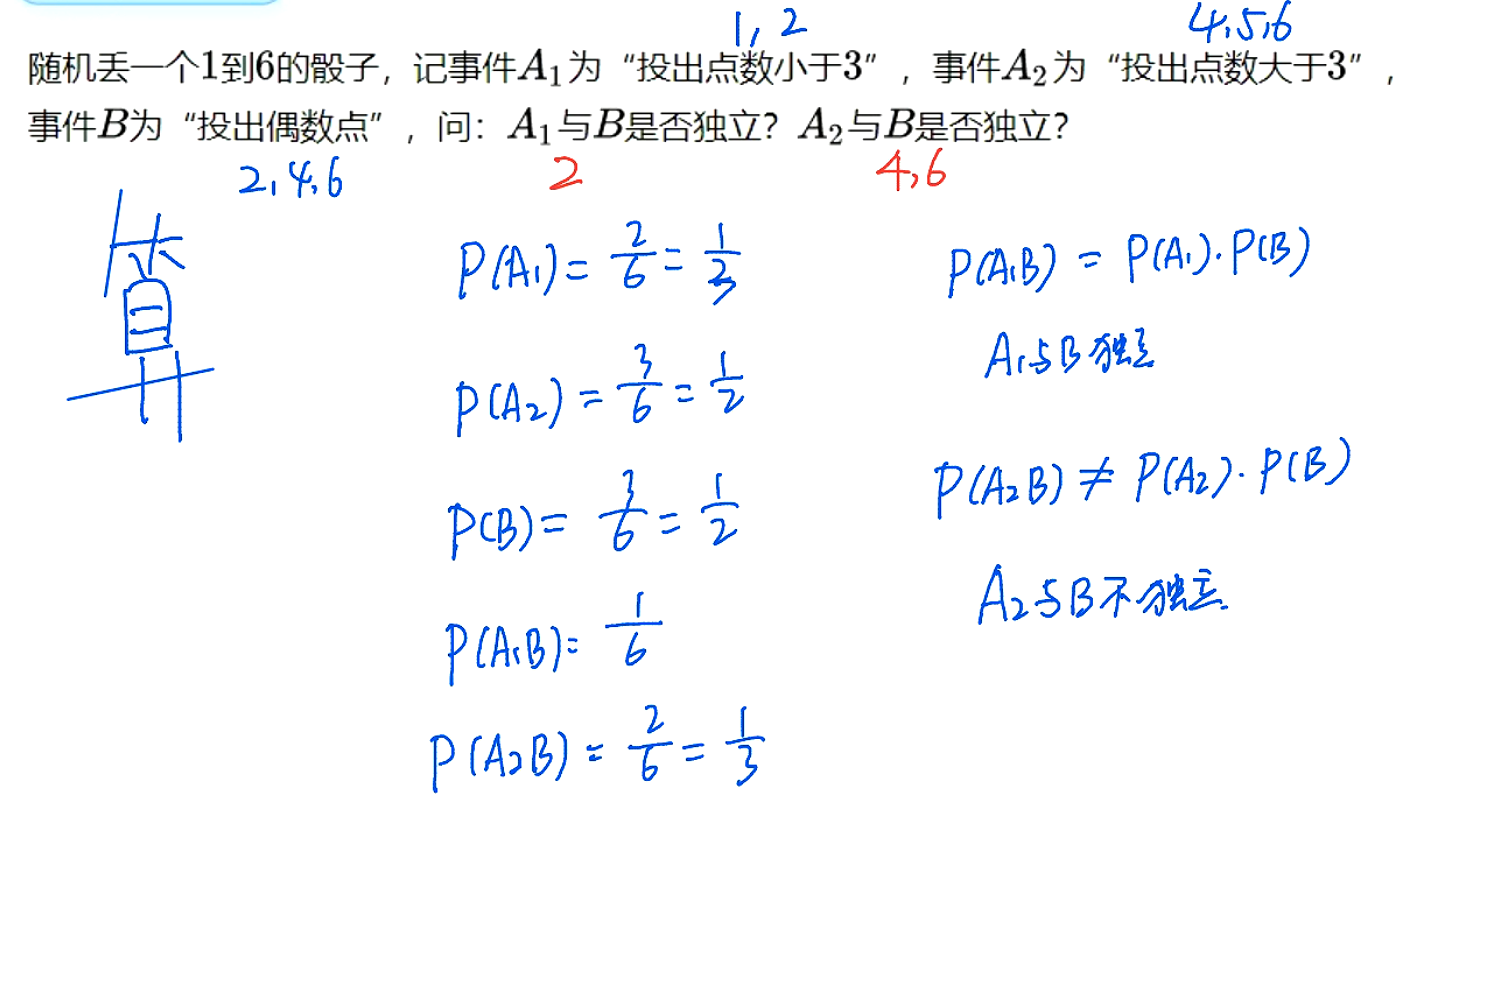 1, 2
4,5,6
随机丢一个1到6的骰子，记事件A₁为“投出点数小于3”，事件A₂为“投出点数大于3”，
事件B为“投出偶数点”，问：A₁与B是否独立？A₂与B是否独立？
2,4,6
2
4,6
P(A₁)=2/6=1/3
P(A₂)=3/6=1/2
P(B)=3/6=1/2
P(A₁B)=1/6
P(A₂B)=2/6=1/3
P(A₁B)=P(A₁)·P(B)
A₁与B独立
P(A₂B)≠P(A₂)·P(B)
A₂与B不独立